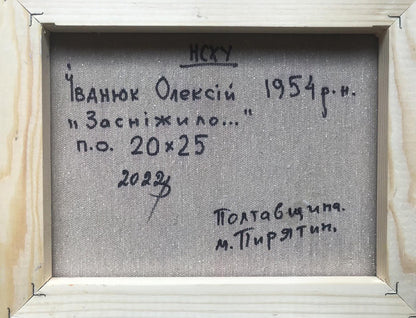 НСХУ
Іванюк Олексій 1954 р.н.
"Засніжило..."
п.о. 20х25
2022р
Полтавщина.
м. Пирятин.